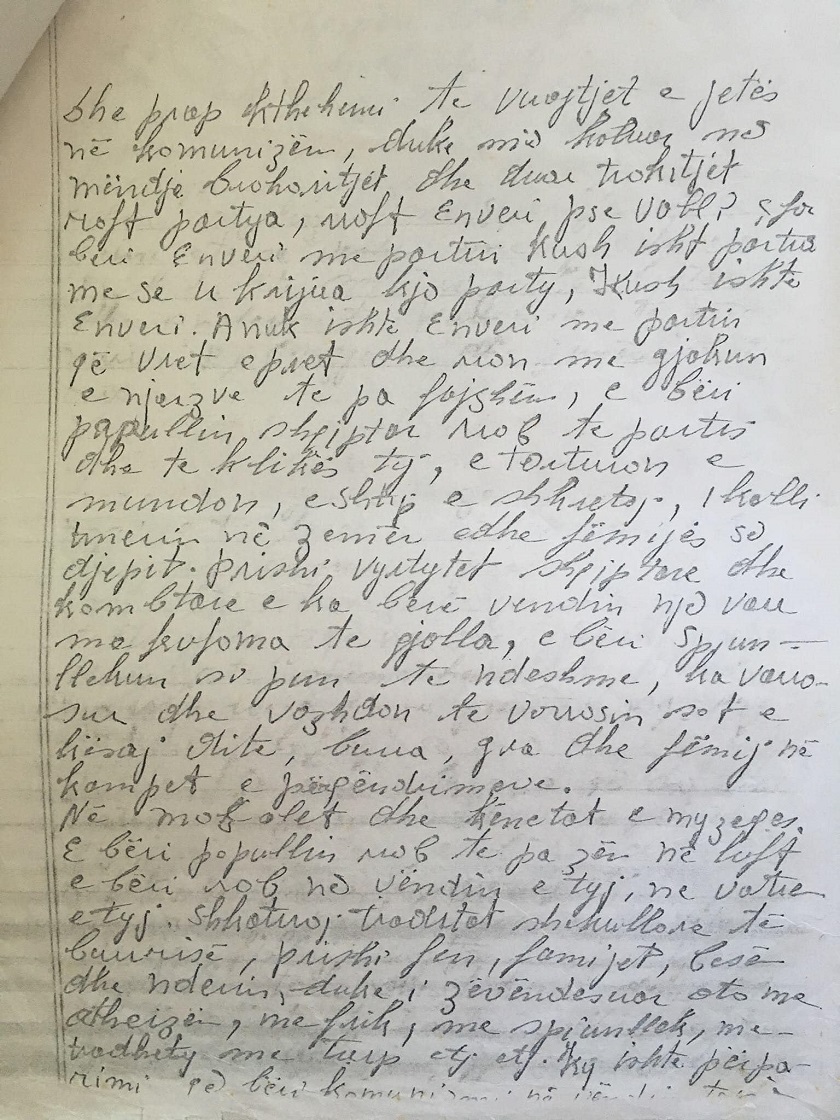 dhe prap kthehemi te vuajtjet e jetës
në komunizëm, duke më kaluar në
mëndje brohoritjet dhe duar trokitjet
roft partya, roft Enveri pse vall? ç far
bëri Enveri me partin Kush isht partia
me se u krijua kjo party, Kush ishte
Enveri. Anuk ishte Enveri me partin
që vret e pret dhe rron me gjakun
e njerzve te pa fajshëm, e bëri
papullin shqiptar rrob te partis
dhe te klikës tij, e torturon e
mundon, e shtyp e shkretoj, i kalli
tmerin në zemër edhe fëmijës së
djepit. prishi vyrtytet shqiptare dhe
kombtare e ka bërë vendin një varr
me kufoma te gjalla, e bëri spjun-
llekun si pun te ndeshme, ka varro-
sur dhe vazhdon te vorrosin sot e
kësaj dite, burra, gra dhe fëmij në
kampet e përqëndrimeve.
Në moçalet dhe kënetat e myzeqes.
E bëri popullin rrob te pa zën në luft
e bëri rob në vëndin e tyj, ne vatrën
e tyj. shkatrroj traditat shekullore të
burrisë, prishi fen, familjet, besën
dhe nderin, duke i zëvëndesuar ato me
atheizëm, me frik, me spiunllek, me
tradhety me turp etj etj. Ky ishte përpa-
rimi që bëri komunizmi në vëndin